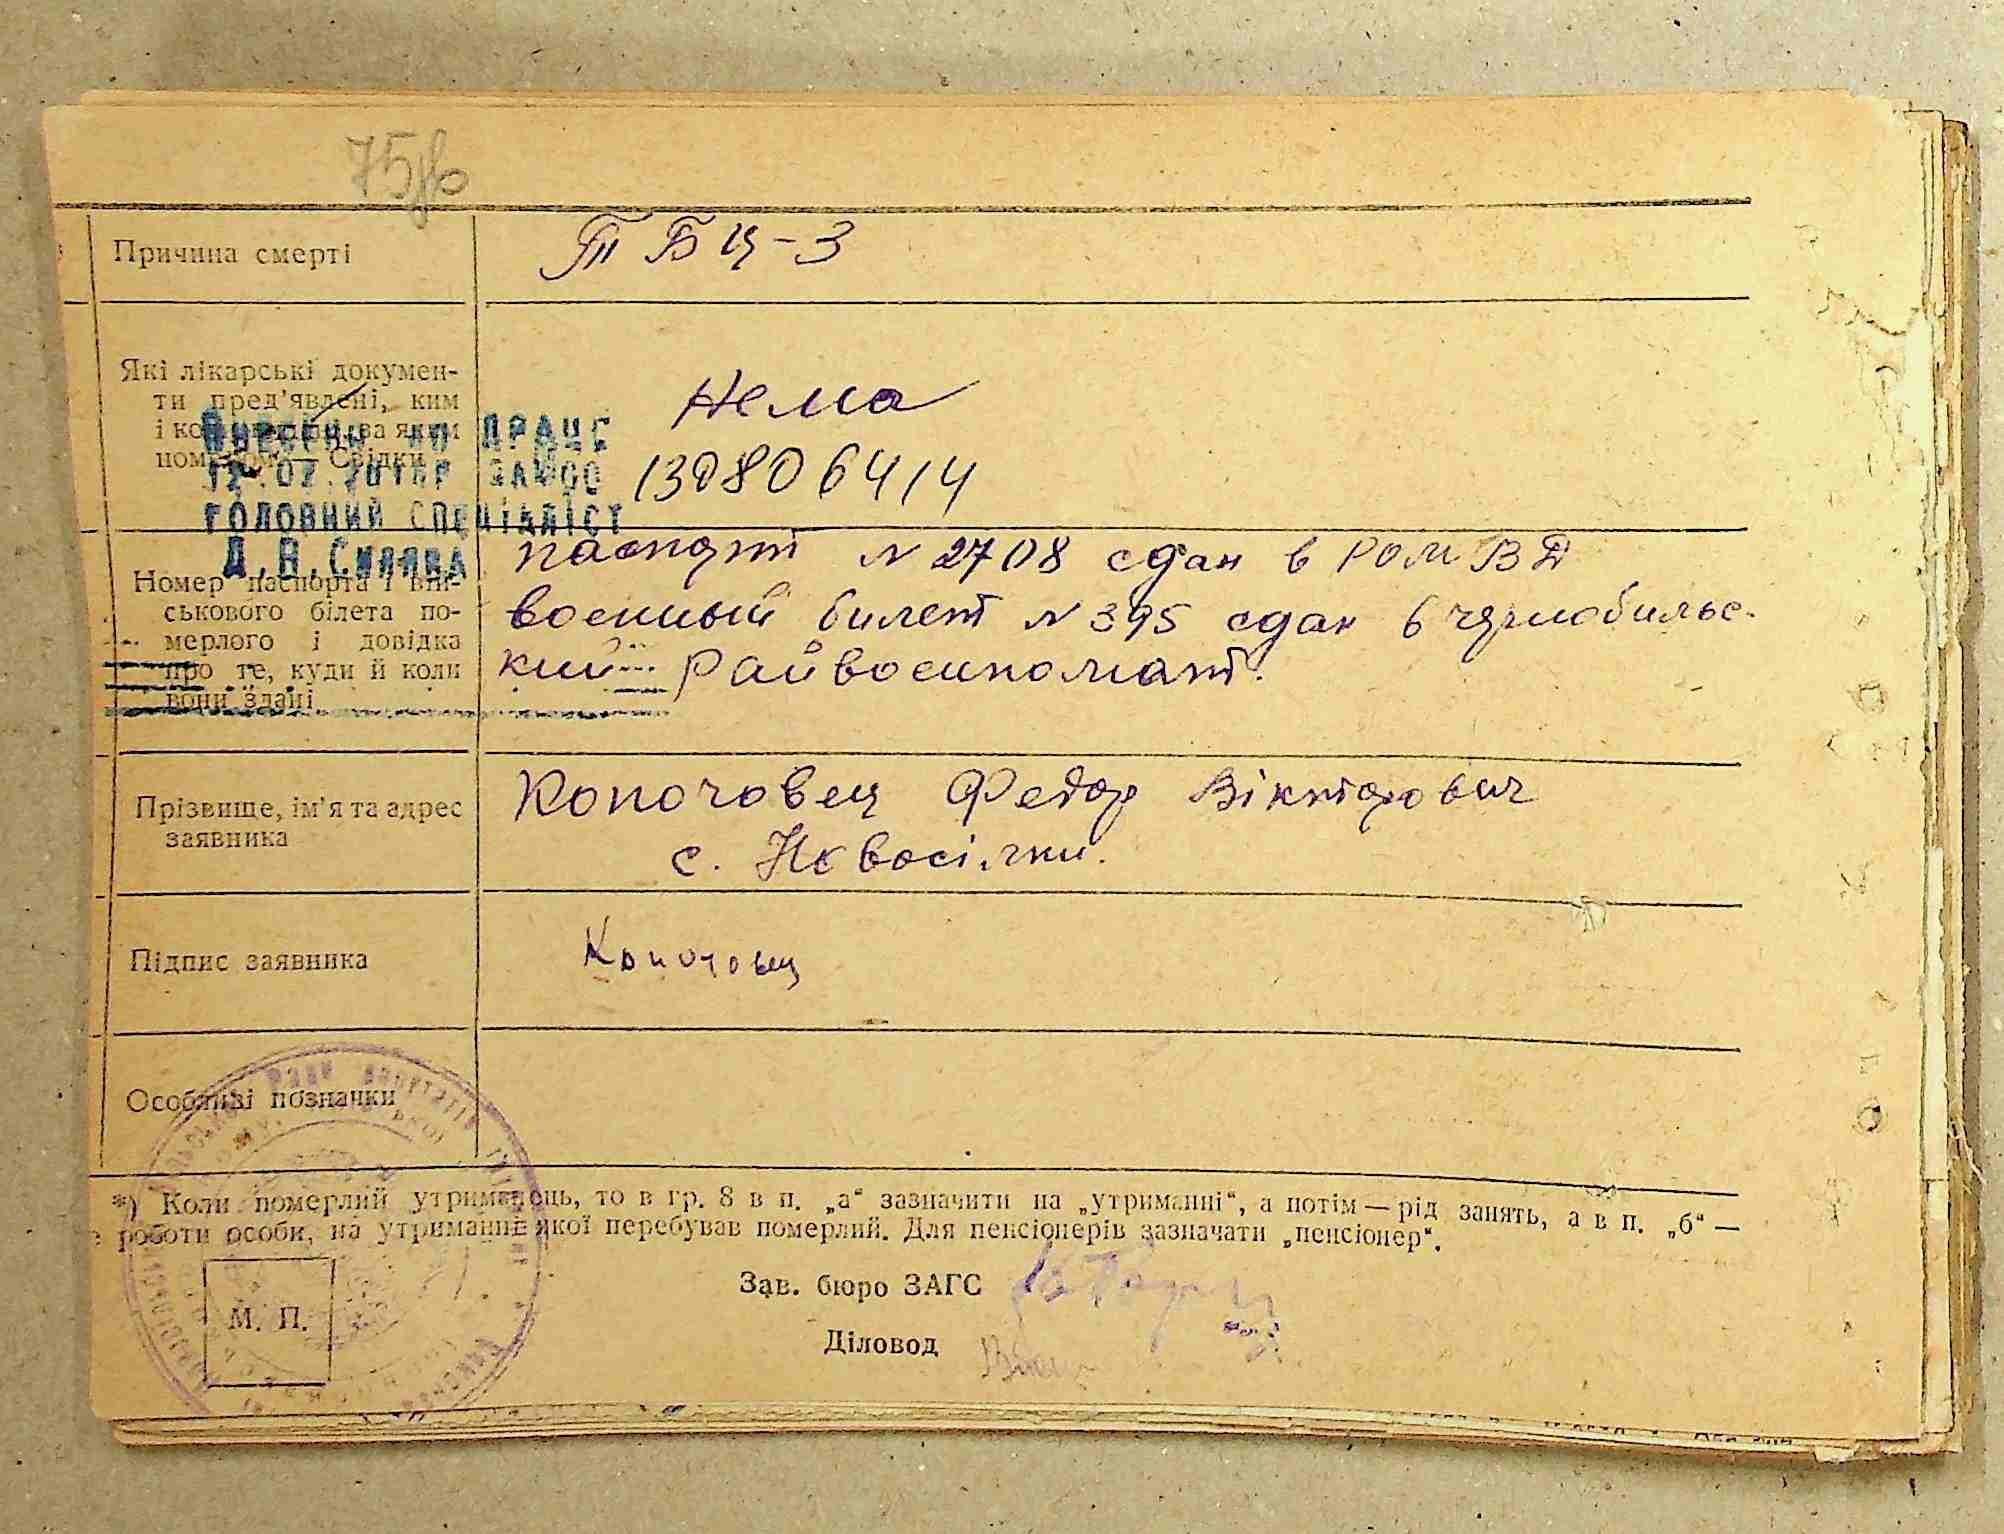 75зв
Причина смерті
ТБЦ-3
Які лікарські докумен-
ти пред'явлені, ким
і ко за яким
Свідки
Нема
130806414
ДРАЦС
ГОЛОВНИЙ СПЕЦІАЛІСТ
Номер паспорта і вій-
ськового білета по-
мерлого і довідка
про те, куди й коли
вони здані
паспорт N 2708 сдан в РОМВД
военный билет N 395 сдан в чернобильс-
кий Райвоенкомат.
Прізвище, ім'я та адрес
заявника
Копочовец Федор Вікторович
с. Новосілки.
Підпис заявника
Копочовец
Особливі позначки
*) Коли померлий утриманець, то в гр. 8 в п. „а“ зазначити на „утриманні“, а потім — рід занять, а в п. „б“ —
роботи особи, на утриманні якої перебував померлий. Для пенсіонерів зазначати „пенсіонер“.
Зав. бюро ЗАГС
М. П.
Діловод